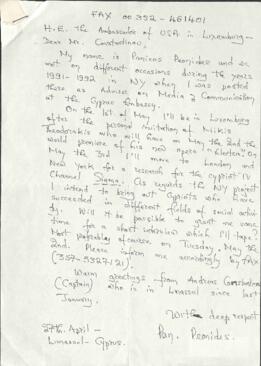 FAX 00 352 - 461401
H.E. the Ambassador of USA in Luxemburg -
Dear Mr. Constantinou,
My name is Panicos Peonides and we
met on different occasions during the years
1991-1992 in NY when I was posted
there as Advisor on Media & Communication
at the Cyprus Embassy.
On the 1st of May I'll be in Luxemburg
after the personal invitation of Mikis
Theodorakis who will have on May the 2nd the
world premiere of his new opera "Electra". On
May the 3rd I'll move to London and
New York for a research for the Cypriot TV
Channel Sigma. As regards the NY project
I intend to bring out Cypriots who have
succeeded in different fields of social activi-
ty. Will it be possible to grant me some
time for a short interview which I'll tape?
Most preferably of course, on Tuesday, May the
2nd. Please inform me accordingly by FAX
(357-5327121).
Warm greetings from Andreas
(Captain) who is in Limassol since last
January.
With deep respect
Pan. Peonides.
27th. April -
Limassol - Cyprus.